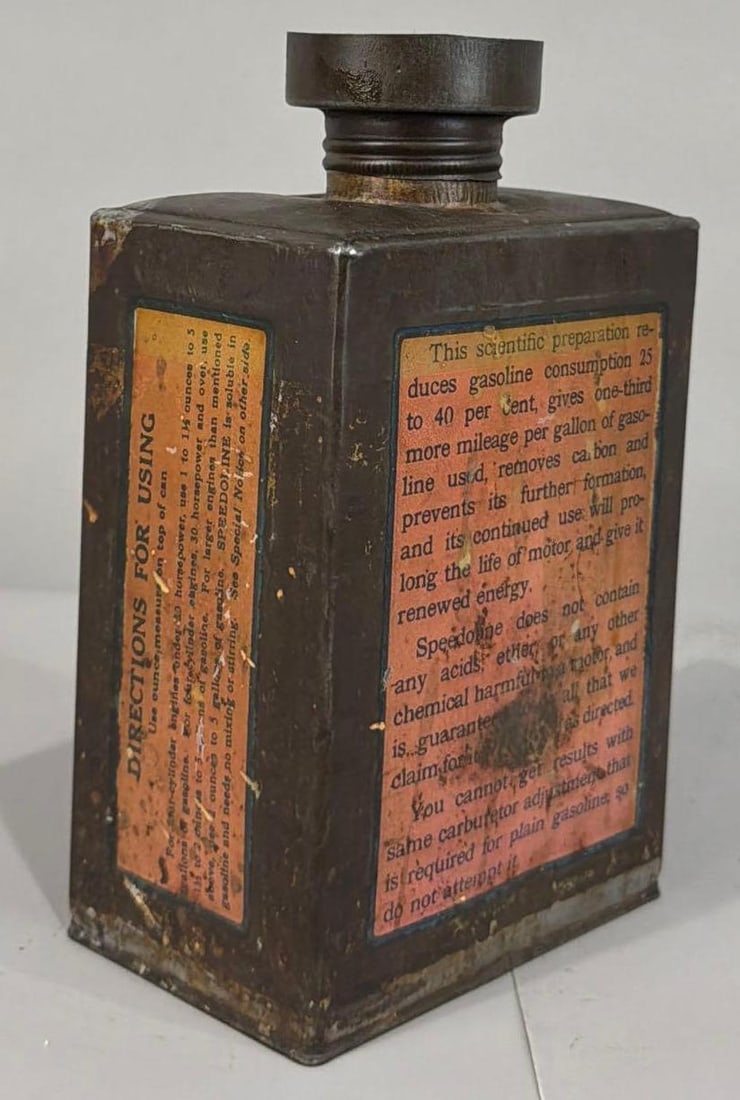 DIRECTIONS FOR USING
Use ounce measure on top of can
For four-cylinder engines under 30 horsepower, use 1 to 1½ ounces to 5
gallons of gasoline. For four-cylinder engines, 30 horsepower and over, use
1½ to 2 ounces to 5 gallons of gasoline. For larger engines than mentioned
above, use ounces to 5 gallons of gasoline. SPEEDOLINE is soluble in
gasoline and needs no mixing or stirring. See Special Notice on other side.
This scientific preparation re-
duces gasoline consumption 25
to 40 per cent, gives one-third
more mileage per gallon of gaso-
line used, removes carbon and
prevents its further formation,
and its continued use will pro-
long the life of motor and give it
renewed energy.
Speedoline does not contain
any acids, ether, or any other
chemical harmful to a motor, and
is guaranteed all that we
claim for it as directed.
You cannot get results with
same carburetor adjustment that
is required for plain gasoline, so
do not attempt it.